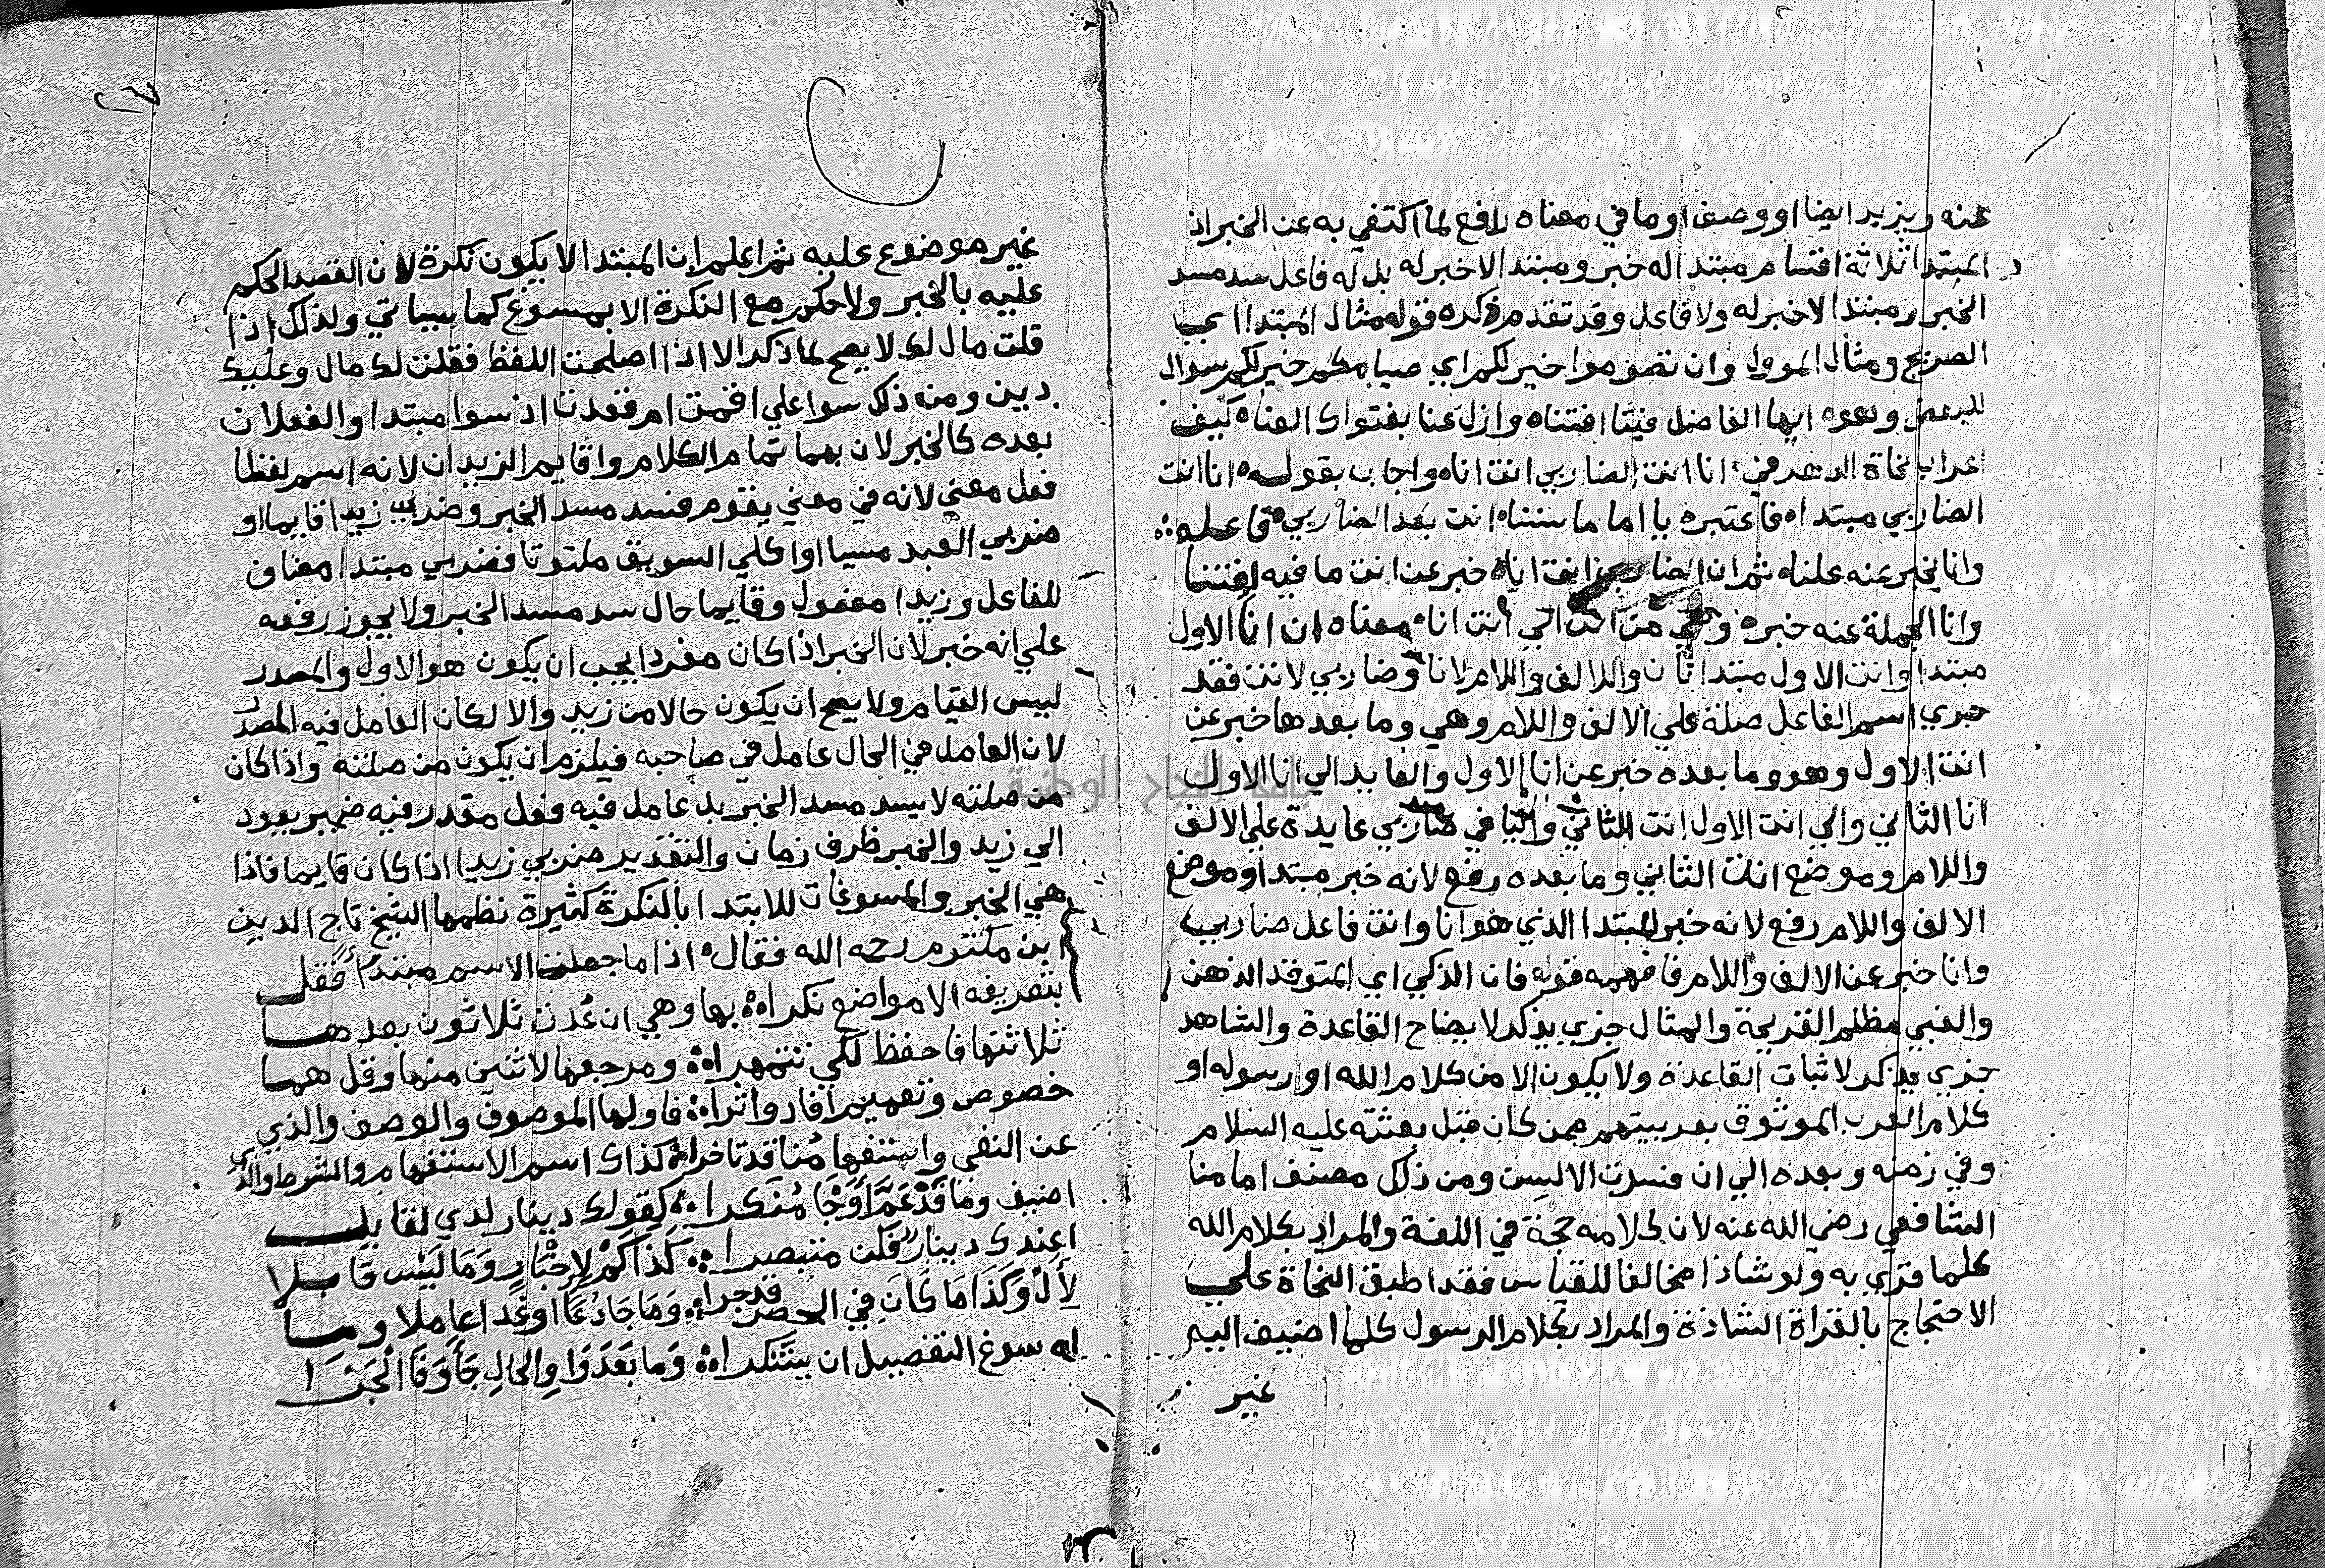 عنه ويزيد ايضا او وصف او ما في معناه رافع لما اكتفي به عن الخبر اذ
المبتدا ثلاثة اقسام مبتدا له خبر ومبتدا لا خبر له بل له فاعل سد مسد
الخبر ومبتدا لا خبر له ولا فاعل وقد تقدم ذكره قوله مثال المبتدا اي
الصريح ومثال المووول وان تصوموا خير لكم اي صيامكم خير لكم سوال
للبعض وهوه ايها الفاضل فينا افتناه وازل عنا بفتواك العناه كيف
اعراب نحاة في انا انت الضاربي انت اناه واجاب بقوله انا انت
الضاربي مبتداه فاعتبره يا اماما سننا انت بعد الضاربي فاعله
وانا يخبر عنه علناه ثم ان الضاربي انت اناه خبر عن انت ما فيه افتننا
وانا الجملة عنه خبره وهي من انت الي انت اناه معناه ان انا الاول
مبتدا وانت الاول مبتدا ثان والالف واللام لانا وضاربي لانت فقد
جري اسم الفاعل صلة علي الالف واللام وهي وما بعدها خبر عن
انت الاول وهو وما بعده خبر عن انا الاول والعايد الي انا الاول
انا الثاني والي انت الاول انت الثاني واليا في ضاربي عايدة علي الالف
واللام وموضع انت الثاني وما بعده رفع لانه خبر مبتدا وموضع
الالف واللام رفع لانه خبر للمبتدا الذي هو انا وانت فاعل ضاربي
وانا خبر عن الالف واللام فافهمه قوله فان الذكي اي المتوقد الذهن
والغبي مظلم القريحة والمثال جزي يذكر لايضاح القاعدة والشاهد
جزي يذكر لاثبات القاعدة ولا يكون الا من كلام الله او رسوله او
كلام العرب الموثوق بعربيتهم ممن كان قبل بعثته عليه السلام
وفي زمنه وبعده الي ان فسدت الالسن ومن ذلك مصنف امامنا
الشافعي رضي الله عنه لان كلامه حجة في اللغة والمراد بكلام الله
كلما قري به ولو شاذا مخالفا للقياس فقد اطبق النحاة علي
الاحتجاج بالقراة الشاذة والمراد بكلام الرسول كلما اضيف اليه
غير
٢٧
غير موضوع عليه ثم اعلم ان المبتدا لا يكون نكرة لان القصد الحكم
عليه بالخبر ولا حكم مع النكرة الا بمسوغ كما سياتي ولذلك اذا
قلت مال لك لا يصح لما ذكر الا اذا اصلحت اللفظ فقلت لك مال وعليك
دين ومنه ذلك سوا علي اقمت ام قعدت اذ سوا مبتدا والفعلان
بعده كالخبر لان بهما تمام الكلام واقايم الزيدان لانه اسم لفظا
فعل معني لانه في معني يقوم فسد مسد الخبر وضربي زيدا قايما او
ضربي العبد مسيا او اكلي السويق ملتوتا فضربي مبتدا مضاف
للفاعل وزيدا مفعول وقايما حال سد مسد الخبر ولا يجوز رفعه
علي انه خبر لان الخبر اذا كان مفردا يجب ان يكون هو الاول والمصدر
ليس القيام ولا يصح ان يكون حالا من زيد والا لكان العامل فيه المصدر
لان العامل في الحال عامل في صاحبه فيلزم ان يكون من صلته واذا كان
من صلته لا يسد مسد الخبر بل عامل فيه فعل مقدر فيه ضمير يعود
الي زيد والخبر ظرف زمان والتقدير ضربي زيدا اذا كان قايما فاذا
هي الخبر والمسوغات للابتدا بالنكرة كثيرة نظمها الشيخ تاج الدين
ابن مكتوم رحمه الله فقال اذا ما جعلت الاسم مبتدأ فقل
بتعريفه الا مواضع نكراه بها وهي ان عدت ثلاثون بعدها
ثلاثتها فاحفظ لكي تتمهراه ومرجعها لاثنين منها وقل هما
خصوص وتعميم افاد واثراه فاولها الموصوف والوصف والذي
عن النفي واستفهامنا قد تاخراه كذاك اسم الاستفهام والشرط والذي
اضيف وما قد عم او جا منكراه كقولك دينار لدي لقايل
اعندك دينار فكن متبصرا كذا كم لاخبار وما ليس قابلا
لال وكذا ما كان في الحصر قد جراه وما جا دعا او غدا عاملا وما
له سوغ التفصيل ان يتنكراه وما بعد واو الحال جا وفا الجزا